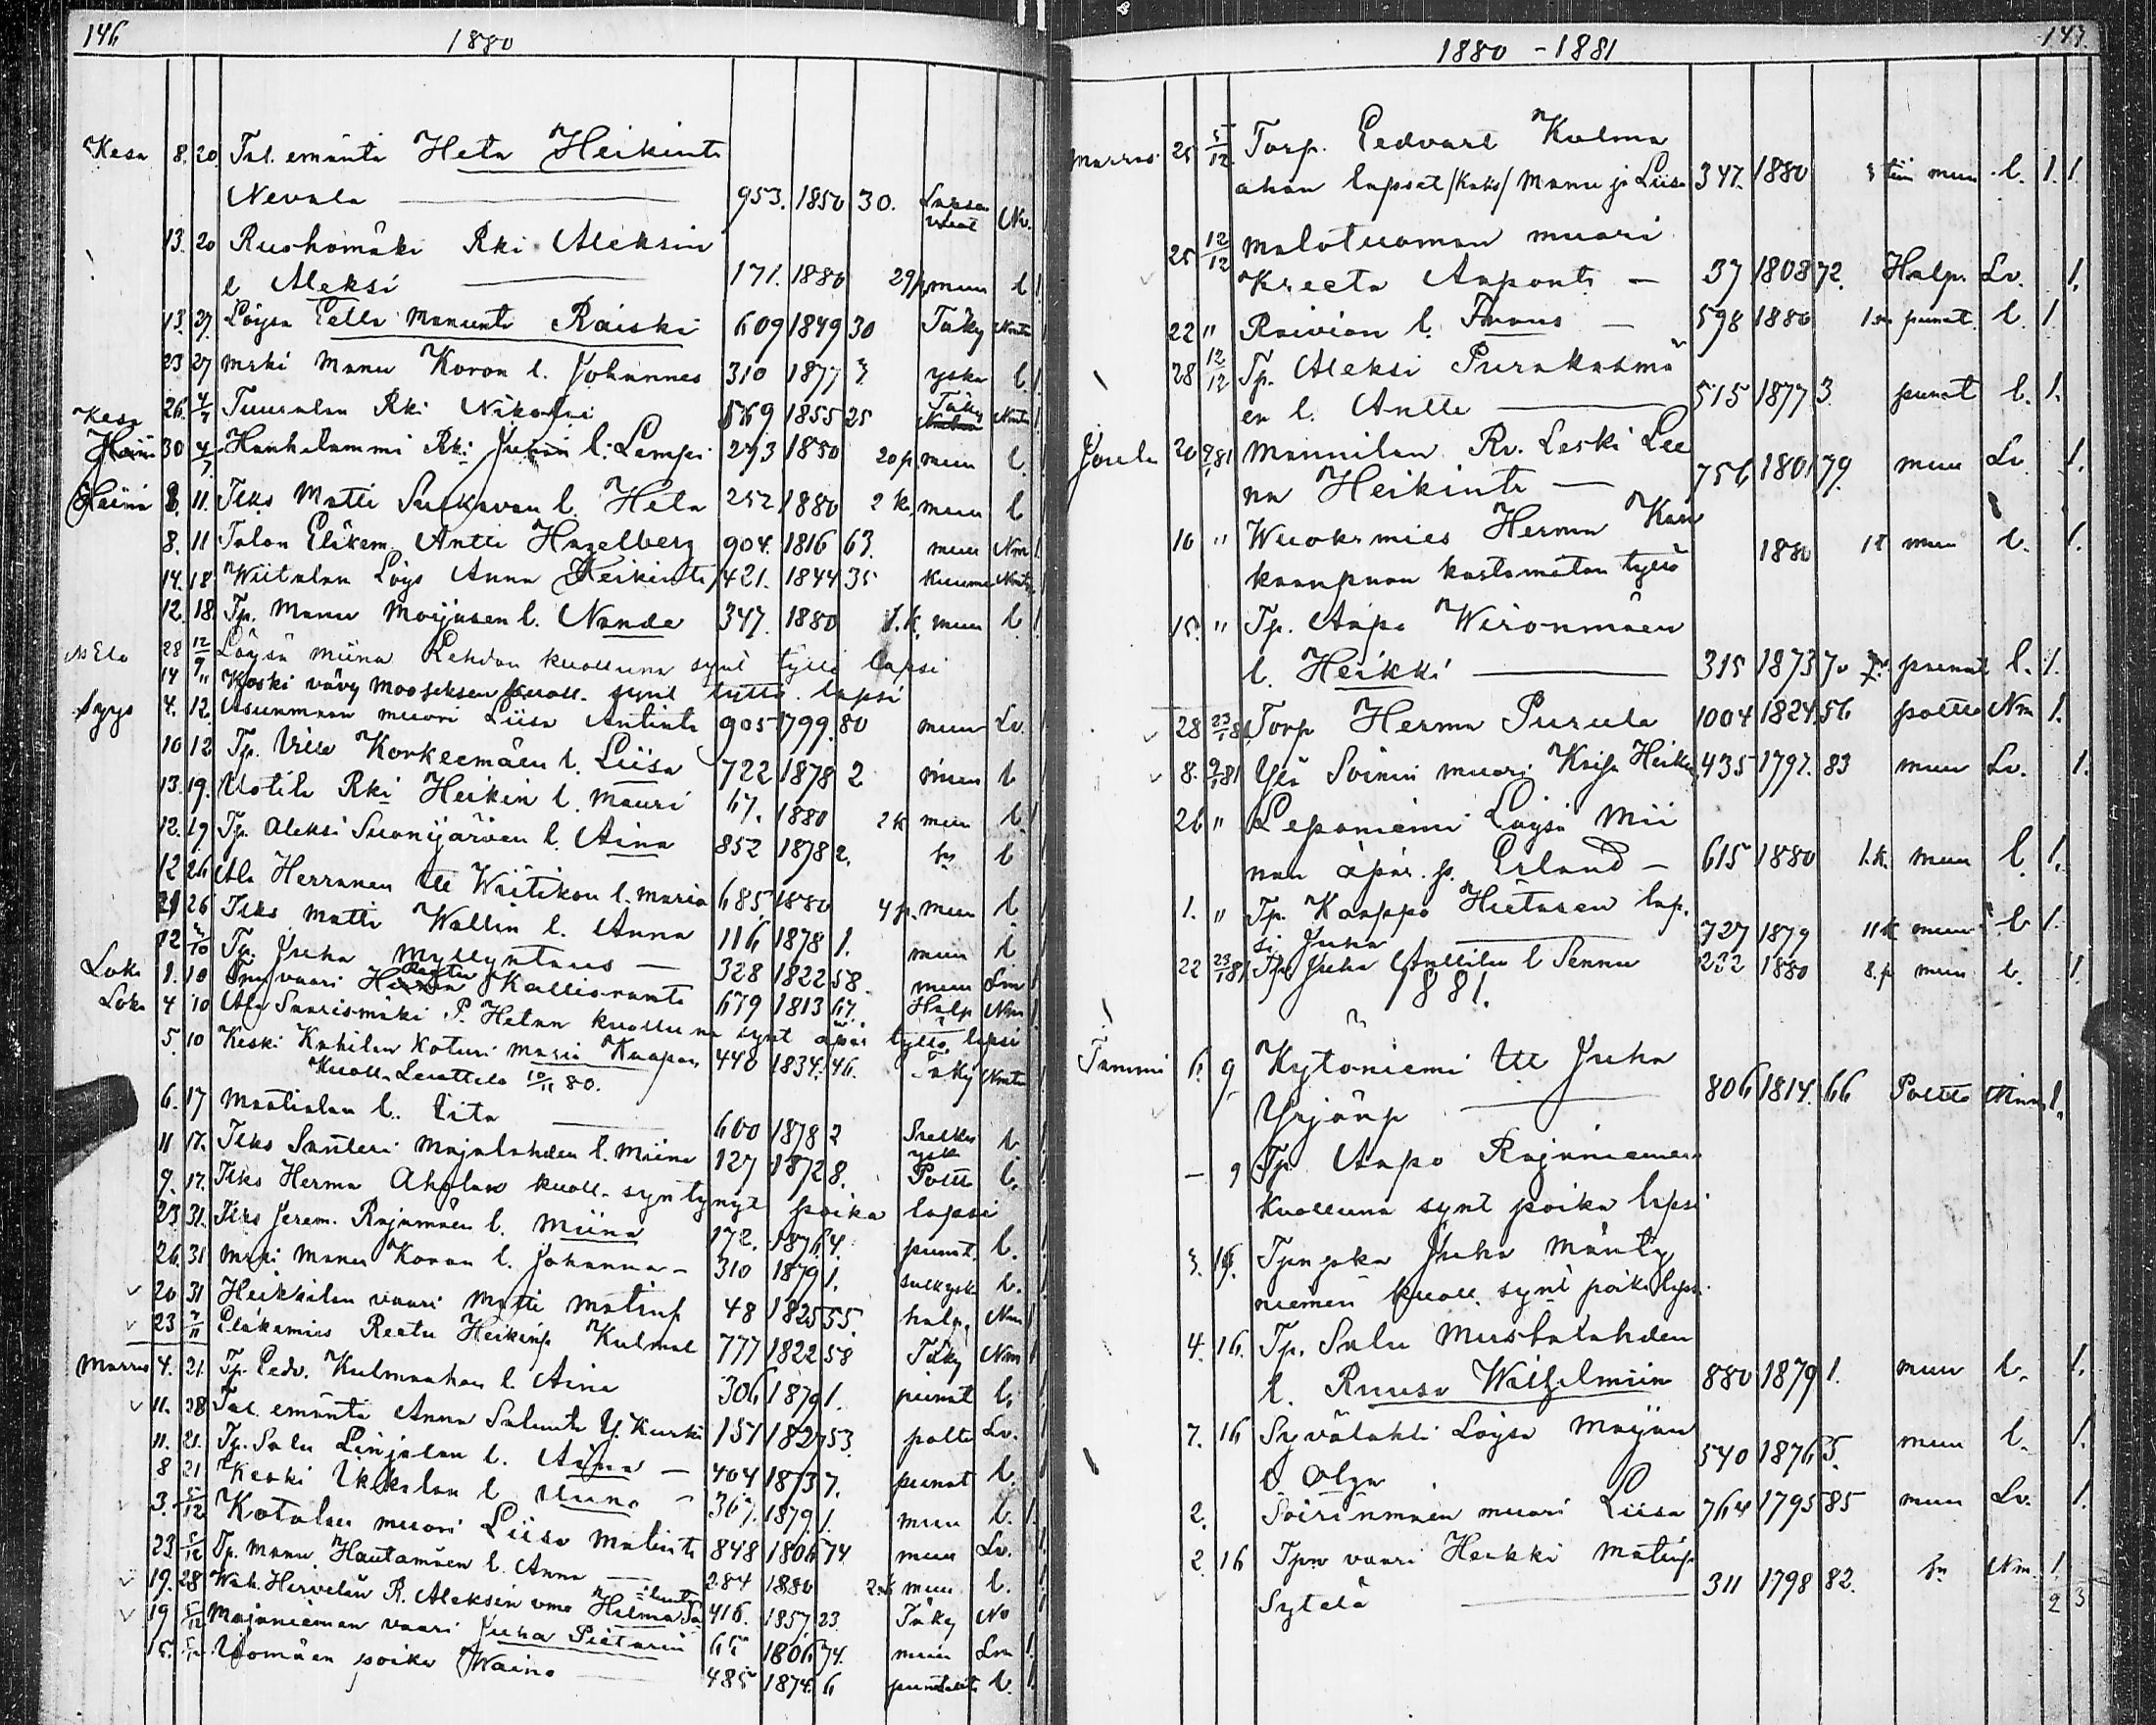 146
1880
Kesä 8. 20. Tal. emäntä Heta Heikint
Nevala 953. 1850 30. Nv.
13. 20 Ruohomäki Rki Aleksin
l Aleksi 171. 1880 29/p muu l 1
13. 27. Löysä Eella Manuunt Raiski 609 1849 30 Täky
23 27 mäki Manu Koron l. Johannes 310 1877 3. yskä l. 1
Kesä 26. 4/7 Tuuralan Rki Nikolai 569 1855 25 Täky
Heinä 30 4/7 Hanhilammi Rki Juhan l. Lempi 293 1880 20 p. muu l.
Heinä 8. 11. Itks Matti Sulkavan l. Heta 252 1880 2 k. muu l
8. 11 Talon Eläkem. Antti Hagelberg 904. 1816 63. muu Nm 1
14. 18 Wiitalan Löys Anna Heikint 421. 1844 35 kuume
12. 18 Tp. Manu Moijasen l. Nanda 347. 1880 1. k. muu l. 1
Elo 28 12/9 Löysä Miina Rehdon kuolluna synt tyttö lapsi
14 " Koski vävy Mooseksen kuoll. synt tyttö lapsi
Syys 4. 12. Asunmaan muori Liisa Antint 905 1799. 80 muu Lv.
10 12 Tp. Ville Korkeemäen l. Liisa 722 1878 2 muu l
13. 19. Uotila Rki Heikin l. Mauri 67. 1880 2 k muu l.
12. 19 Tp. Aleksi Suonijärven l. Aina 852 1878 2. l
12 26 Ala Herranen Itl Wäitikön l. Maria 685 1880 4 p. muu l
21 26 Itks Matti Wallin l. Anna 116 1878 1. muu l
12 Tp. Juha Myllyntaus 328 1822 58. muu Lm
Loka 1. 10 vaari Reetu Kallioranta 679 1813 67. Halp Nm
Loka 4 10 Ala Saarismäki P. Hetan kuolluna synt äpär tyttö lapsi
5. 10 Keski Kahilan Koturi Maria Kaapon 440 1834. 46. Täky
Kuoll. Luettelo 10/11 80.
6. 17 Mattilan l. Iita 600 1878 2 l.
11 17. Itks Santeri Majalahden l. Miina 127 1872 8. Poltt l.
9. 17. Itks Herma Aholan kuoll. syntynyt poika lapsi
23 31. Itks Jerem. Rajamäen l. Miina 172. 1876 4. punat. l.
26. 31 mäki Manu Koron l. Johanna 310 1879 1. l.
20 31 Heikkilän vaari Matti Matinp 48 1825 55. halp. Nm
23 7/11 Eläkemies Reetu Heikinp Kulmal 777 1822 58 Täky Nm
Marras 4. 21. Tp. Edv. Kulmaahon l. Aina 306 1879 1. punat l.
11. 28 Tal. emäntä Anna Salunt Y. Kurki 157 1827 53. poltt Lv.
11. 21. Tp. Salu Linjalan l. Aina 404 1873 7. punat l.
8 21 Keski Ukkolan l Uuno 367. 1879. 1. muu l. 1.
3. 5/12 Kotalan muori Liisa Matint 848 1806 74 muu Lv.
23 5/12 Tp. Manu Hautamäen l. Anna 284 1880 muu l.
19. 28 Wäh. Hirvelän R. Aleksin vmo Hilma 416. 1857 23. Täky Nv
19 5/12 Majaniemen vaari Juha Pietarin 65 1806 74. muu Lm
15. Uomäen poika Waino 485 1874. 6 l. 1.
147.
1880 - 1881
Marras 25 5/12 Torp. Eedvart Kulma
ahon lapset /kaks/ Manu ja Liisa 347. 1880 muu l. 1. 1.
25 12/12 Malotuoman muori
Kreeta Aapont 37 1808 72. Halp. Lv. 1.
22 " Raivion l. Frans 598 1880 punat. l. 1
28 12/12 Tp. Aleksi Purakasmä
en l. Antti 515 1877 3. punat l. 1.
Joulu 20 Mannilan Rv. Leski Lee
na Heikint 756 1801 79. muu Lv. 1.
10 " Wuokrmies Herma Kan
kaanpään kastamaton tyttö 1880 muu l. 1.
15. " Tp. Aapo Wironmäen
l. Heikki 315 1873 7 punat l. 1.
28 23/1 81 Torp Herma Purula 1004 1824 56 poltto Nm 1.
8. 9/1 81 Ylä Soinin muori Kaisa Heikin 435 1797. 83 muu Lv. 1.
26 " Lepaniemi Löysä Mii
nan äpär. p. Erland 615 1880 1. k. muu l. 1.
1. " Tp. Kaappo Hietasen lap.
si Juha 727 1879 11 k muu l 1.
22 23/1 81 Tp. Juha Anttilan l Sennu 232 1880 8. p muu l. 1
1881.
Tammi 6. 9 Kytöniemi Itl Juha
Yrjönp 806 1814. 66 Poltto
— 9 Tp. Aapo Rajaniemen
kuolluna synt poika lapsi
3. 16. Juha Mänty
niemen kuoll. synt poika lapsi
4. 16. Tp. Salu Mustalahden
l. Ruusa Wilhelmiin 880 1879 1. muu l. 1.
7. 16 Syvälahti Löysä Maijan
l. Olga 540 1876 5. muu l. 1.
2. Soirinmäen muori Liisa 764 1795 85 muu Lv. 1.
2 16 Tpn vaari Heikki Matinp
Sytelä 311 1798 82. Nm. 1.
2 3